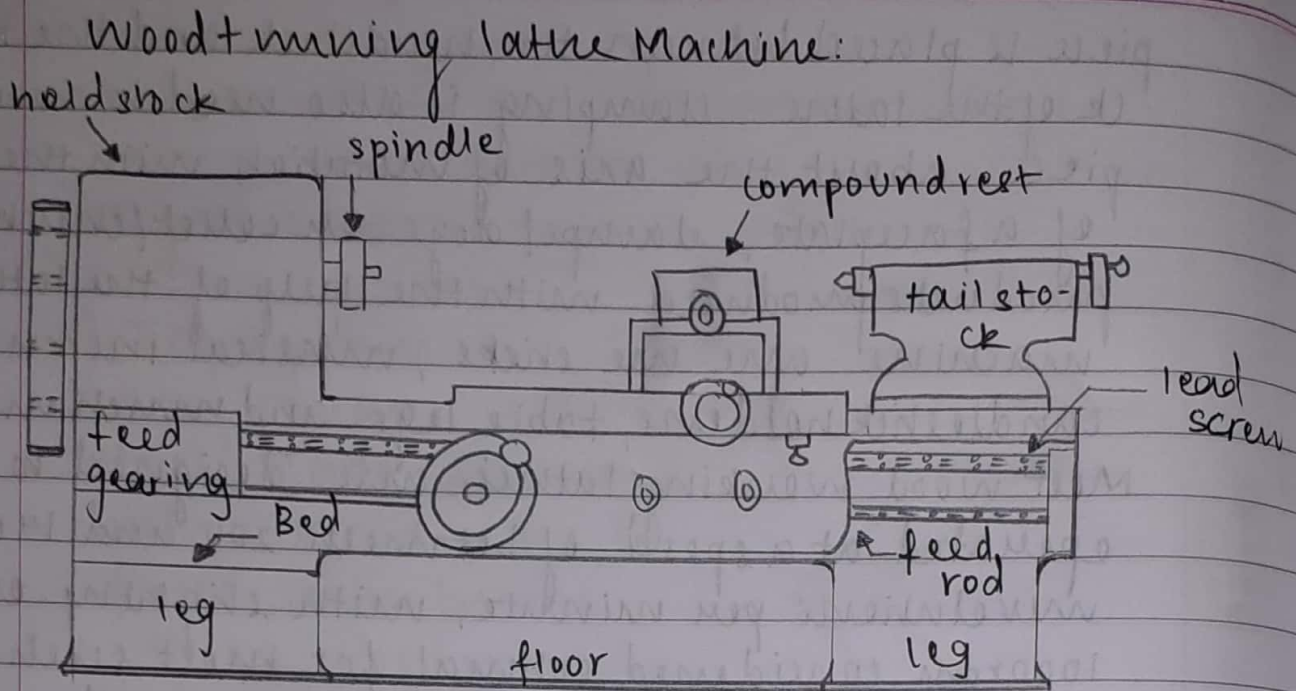 Wood turning lathe Machine:
heldstock
spindle
compound rest
tail sto-
ck
lead
screw
feed
gearing
Bed
feed
rod
leg
floor
leg